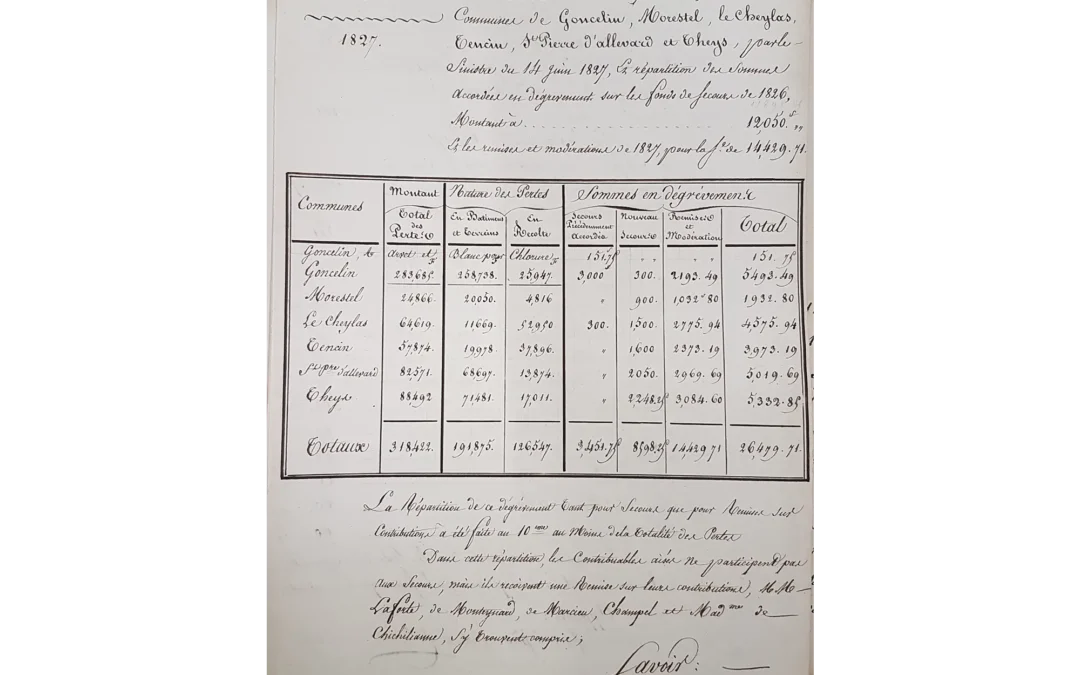 Communes de Goncelin, Morestel, le Cheylas,
1827.
Tencin, St Pierre d'allevard et Theys, par le
Sinistre du 14 juin 1827, Et répartition des Sommes
accordées en dégrèvement sur les fonds de secours de 1826,
Montant à . . . . . . . . . . 12,050.f „
Et les remises et modérations de 1827, pour la Se de 14,429.71.
Communes
Montant Total des Pertes
Nature des Pertes
En Batimens et Terrains
En Recolte
Sommes en dégrèvement
Secours Précédemment accordés
Nouveau Secours
Remises et Modération
Total
Goncelin, arvet et Blanc pour Chlorure 151.75 „ „ „ 151.75
Goncelin 283,685. 258,738. 25,947. 3,000 300. 2193.49 5493.49
Morestel 24,866. 20050. 4,816 „ 900. 1,032.80 1932.80
Le Cheylas 64,619. 11,669. 52,950 300. 1,500. 2775.94 4,575.94
Tencin 57,874. 19,978. 37,896. „ 1,600 2373.19 3,973.19
St pre d'allevard 82,571. 68697. 13,874. „ 2050. 2969.69 5,019.69
Theys 88,492 71,481. 17,011. „ 2,248.25 3,084.60 5,332.85
Totaux 318,422. 191,875. 126547. 3,451.75 8598.25 14,429 71 26,479.71.
La Répartition de ce dégrèvement tant pour Secours que pour Remises sur
Contributions a été faite au 10eme au Moins de la totalité des Pertes
Dans cette répartition, les Contribuables aisés ne participent pas
aux Secours, mais ils reçoivent une Remise sur leurs contributions, MM
Laforte, de Monteynard, de Marcieu, Champel et Madme de
Chichilianne, s'y trouvent compris;
Savoir: